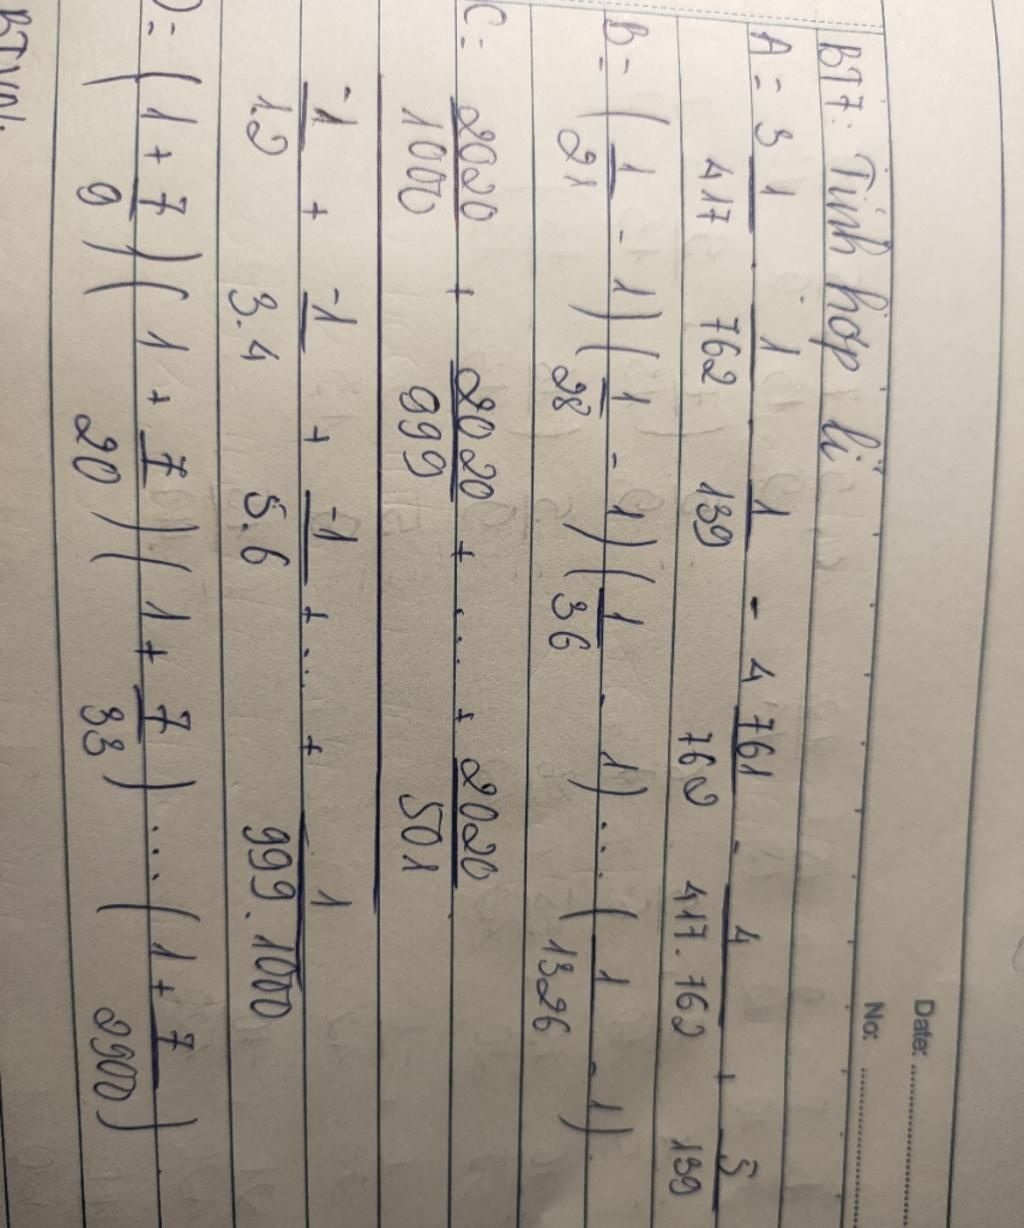 Date: ....................
No: ....................
BT7: Tính hợp lí
A = 3 1/417 . 1/762 . 1/139 - 4 761/762 - 4/417.762 + 5/139
B = (1/21 - 1)(1/28 - 1)(1/36 - 1)...(1/1326 - 1)
C = 2020/1000 + 2020/999 + ... + 2020/501
-1/1.2 + -1/3.4 + -1/5.6 + ... + 1/999.1000
D = (1 + 7/9)(1 + 7/20)(1 + 7/33)...(1 + 7/2900)
BTVN.